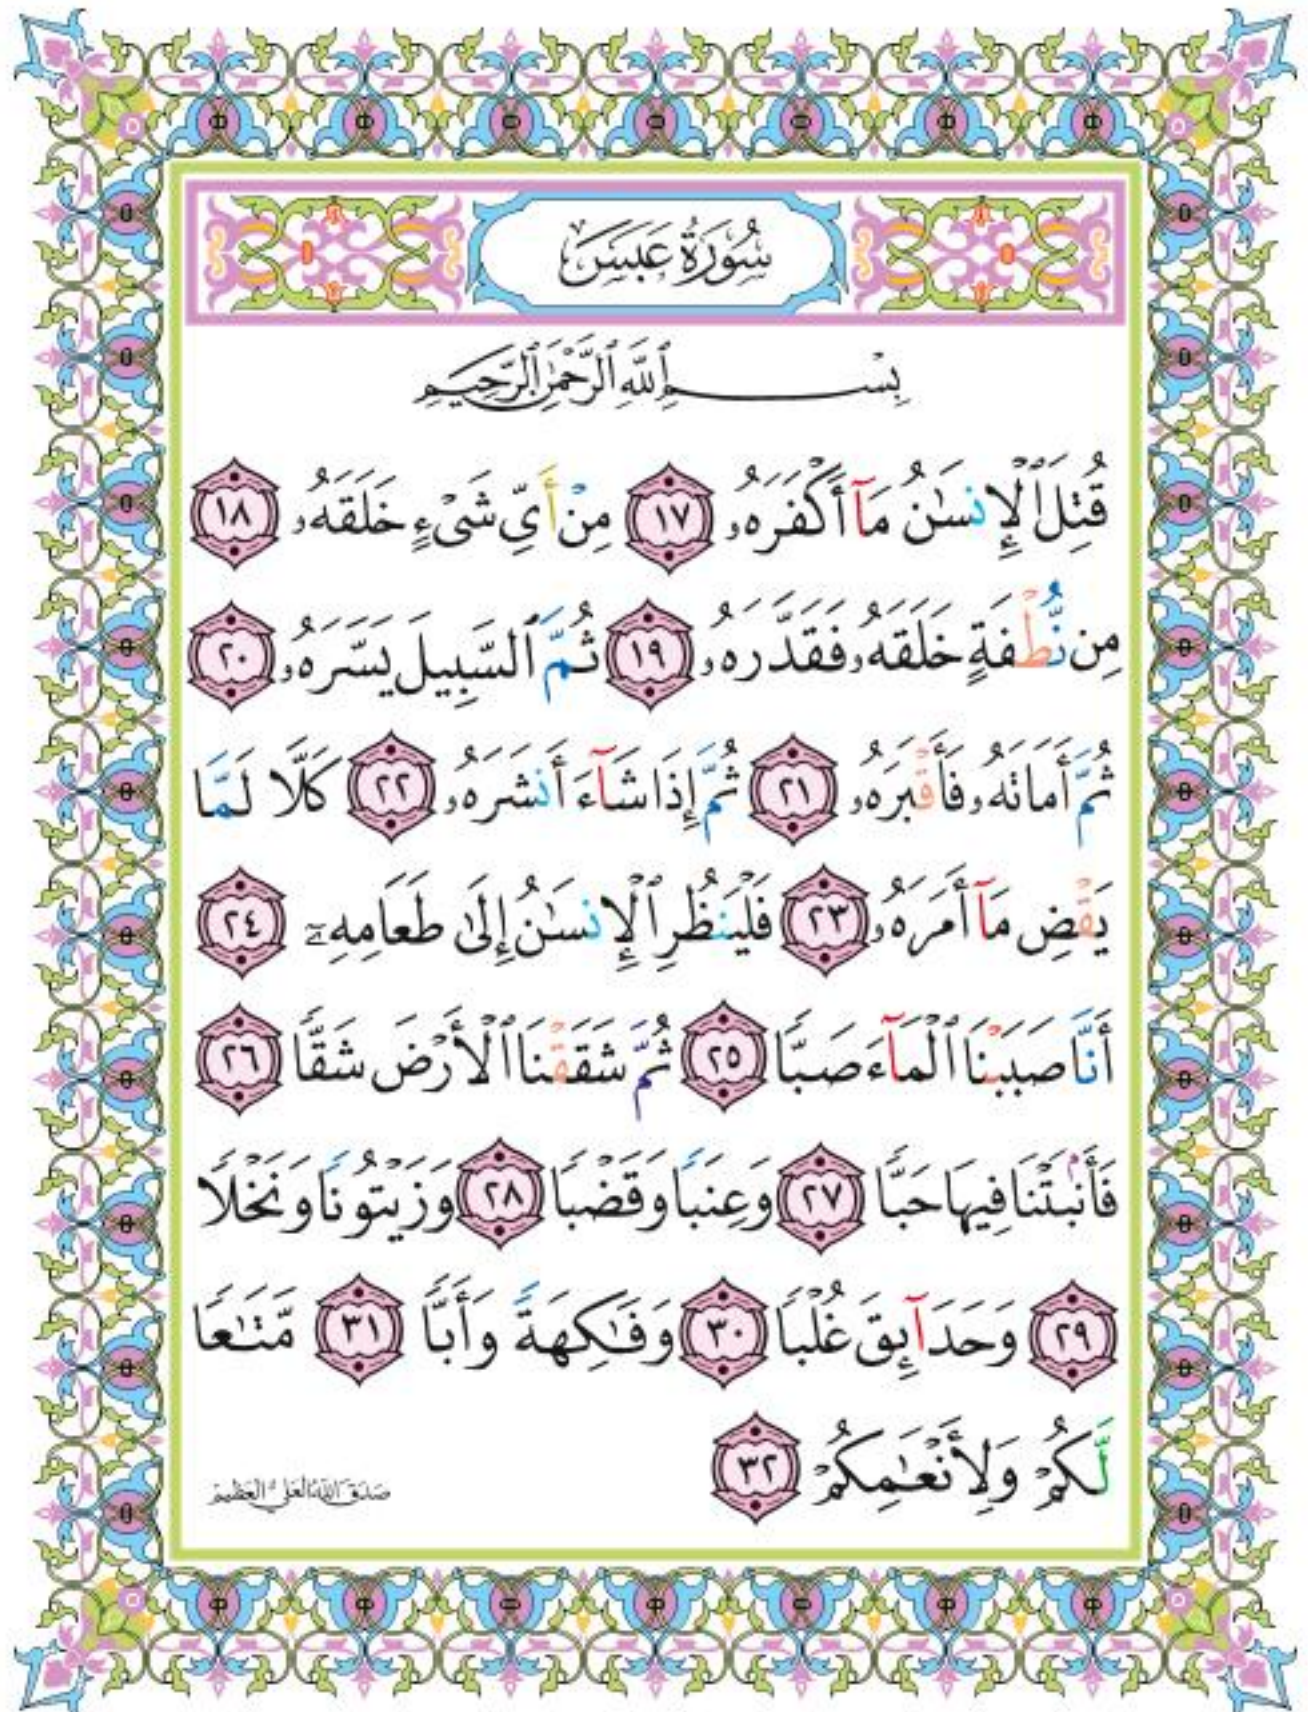 سُورَةُ عَبَسَ
بِسْمِ ٱللَّهِ ٱلرَّحْمَٰنِ ٱلرَّحِيمِ
قُتِلَ ٱلْإِنسَٰنُ مَآ أَكْفَرَهُۥ ١٧ مِنْ أَىِّ شَىْءٍ خَلَقَهُۥ ١٨
مِن نُّطْفَةٍ خَلَقَهُۥ فَقَدَّرَهُۥ ١٩ ثُمَّ ٱلسَّبِيلَ يَسَّرَهُۥ ٢٠
ثُمَّ أَمَاتَهُۥ فَأَقْبَرَهُۥ ٢١ ثُمَّ إِذَا شَآءَ أَنشَرَهُۥ ٢٢ كَلَّا لَمَّا
يَقْضِ مَآ أَمَرَهُۥ ٢٣ فَلْيَنظُرِ ٱلْإِنسَٰنُ إِلَىٰ طَعَامِهِۦٓ ٢٤
أَنَّا صَبَبْنَا ٱلْمَآءَ صَبًّا ٢٥ ثُمَّ شَقَقْنَا ٱلْأَرْضَ شَقًّا ٢٦
فَأَنۢبَتْنَا فِيهَا حَبًّا ٢٧ وَعِنَبًا وَقَضْبًا ٢٨ وَزَيْتُونًا وَنَخْلًا
٢٩ وَحَدَآئِقَ غُلْبًا ٣٠ وَفَٰكِهَةً وَأَبًّا ٣١ مَّتَٰعًا
لَّكُمْ وَلِأَنْعَٰمِكُمْ ٣٢
صَدَقَ اللهُ العَلِيُّ العَظِيمُ